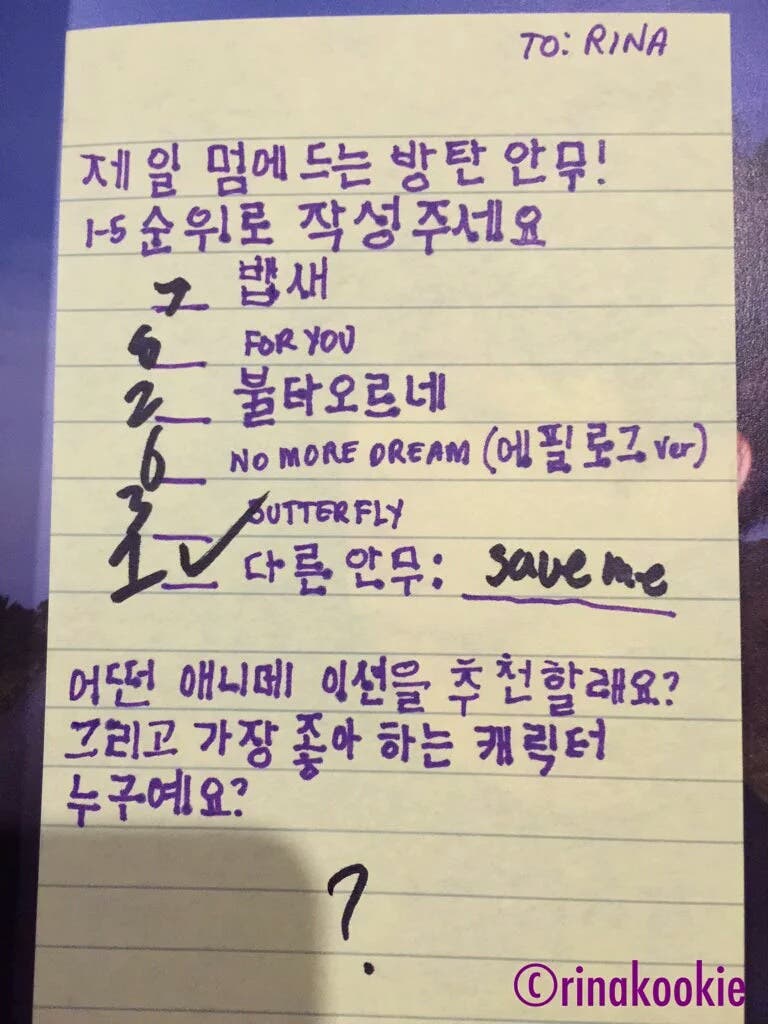 TO: RINA
제일 멈에드는 방탄 안무!
1-5 순위로 작성주세요
7 뱁새
FOR YOU
2 불타오르네
6 NO MORE DREAM (에필로그 ver)
3 BUTTERFLY
1 ✓ 다른 안무: save me
어떤 애니메이션을 추천할래요?
그리고 가장 좋아하는 캐릭터
누구예요?
?
©rinakookie